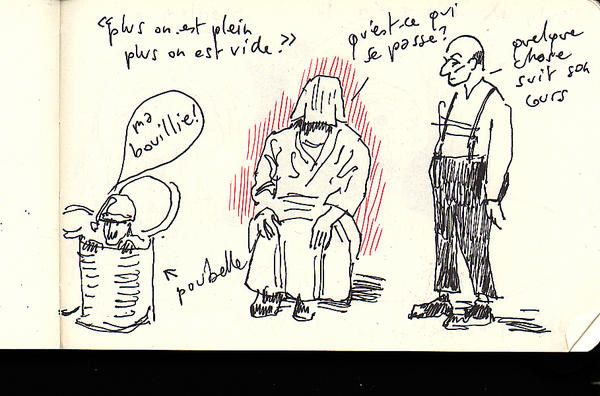 "plus on est plein
plus on est vide."
qu'est-ce qui
se passe?
quelque
chose
suit son
cours
ma
bouillie!
poubelle